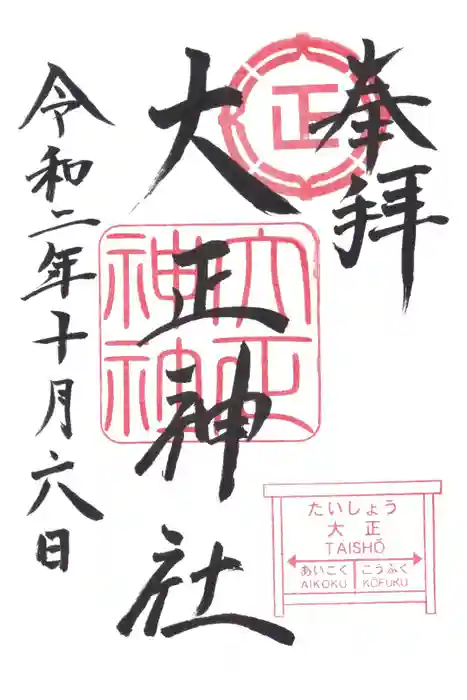 奉拝
正
大正神社
大正神社
令和二年十月六日
たいしょう
大正
TAISHŌ
あいこく こうふく
AIKOKU KŌFUKU